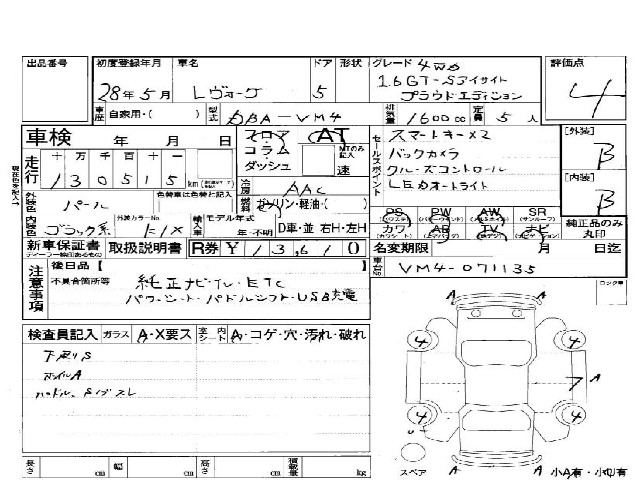 出品番号 初度登録年月 車名 ドア 形状 グレード 4WD 評価点
28年5月 レヴォーグ 5 1.6GT-Sアイサイト
プラウドエディション 4
車歴 自家用・( ) 型式 DBA-VM4 排気量 1600 cc 定員 5 人
車検 年 月 日 フロア AT
コラム MTのみ記入
ダッシュ 速
セールスポイント スマートキーX2
バックカメラ
クルーズコントロール
LEDオートライト
[外装] B
[内装] B
走行 十 万 千 百 十 一
1 3 0 5 1 5 km
冷房 AAC
外装色 パール 色替車は色替と記入 燃料 ガソリン・軽油・( )
内装色 ブラック系 外装カラーNo. K1X 輸入車 モデル年式 年・不明 D車・並 右H・左H
PS PW AW SR (サンルーフ)
カワ AB TV ナビ
純正品のみ丸印
新車保証書 取扱説明書 R券 ¥ 1 3,6 1 0 名変期限 月 日迄
車台No. VM4-071135
注意事項 後日品【
不具合箇所等 純正ナビ・TV・ETC
パワーシート・パドルシフト・USB充電
ロック車
検査員記入 ガラス A・X要ス 室内 シート A・コゲ・穴・汚れ・破れ
下廻りS
ホイルA
ハンドル、Sノブスレ
A A
4 4
A 7 A
4 4
スペア A A 小A有・小U有
長さ cm 幅 cm 高さ cm 積載量 kg
現在色を記入↑